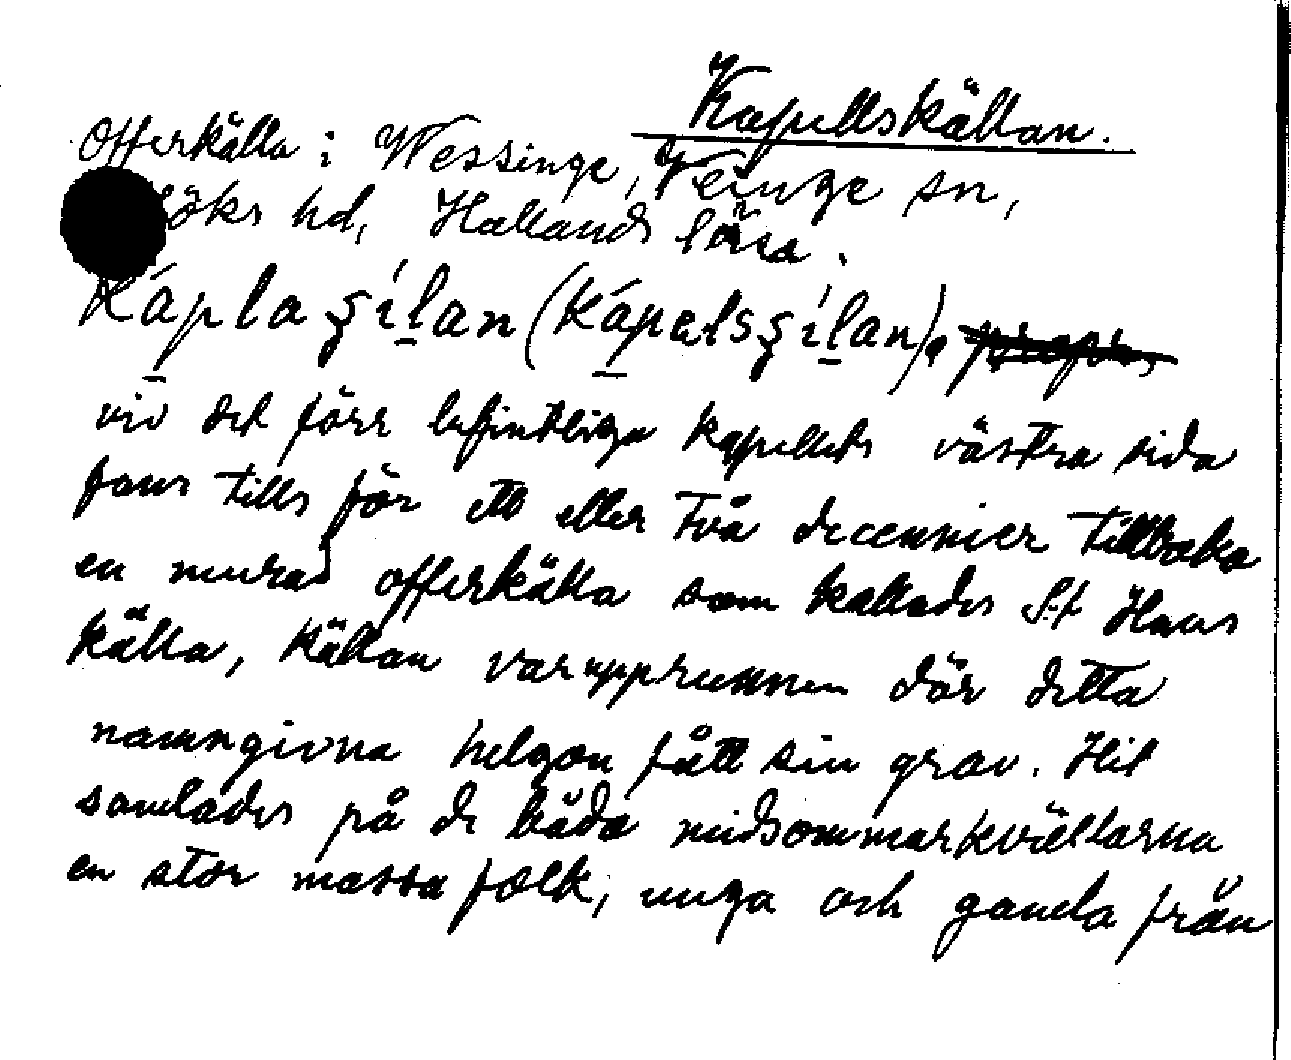 Kapellskällan.
Offerkälla i Wessinge, Veinge sn,
öks hd, Hallands län.
Kápla şílan (kápelsşílan),
vid det förr befintliga kapellets västra sida
fans tills för ett eller två decennier tillbaka
en murad offerkälla som kallades S:t Hans
källa, källan var upprunnen där detta
namngivna helgon fått sin grav. Hit
samlades på de båda midsommarkvällarna
en stor massa folk, unga och gamla från